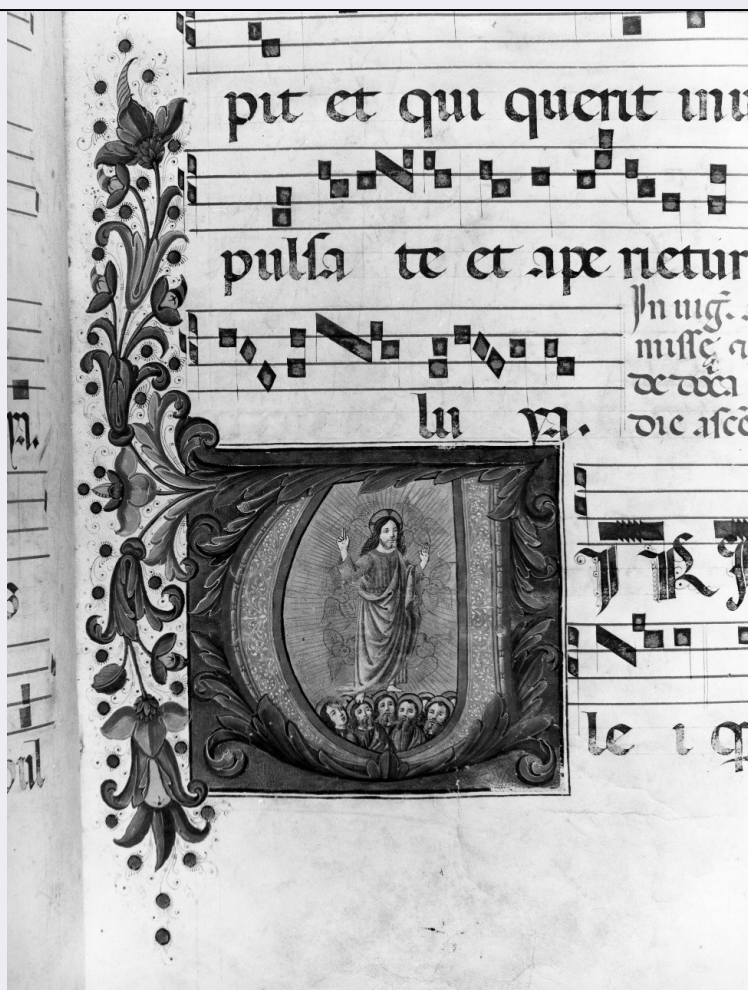 pit et qui querit inu
pulsa te et ape rietur
In uig̃.
misse
de
die ascẽ
lu ya.
V IRI
le i